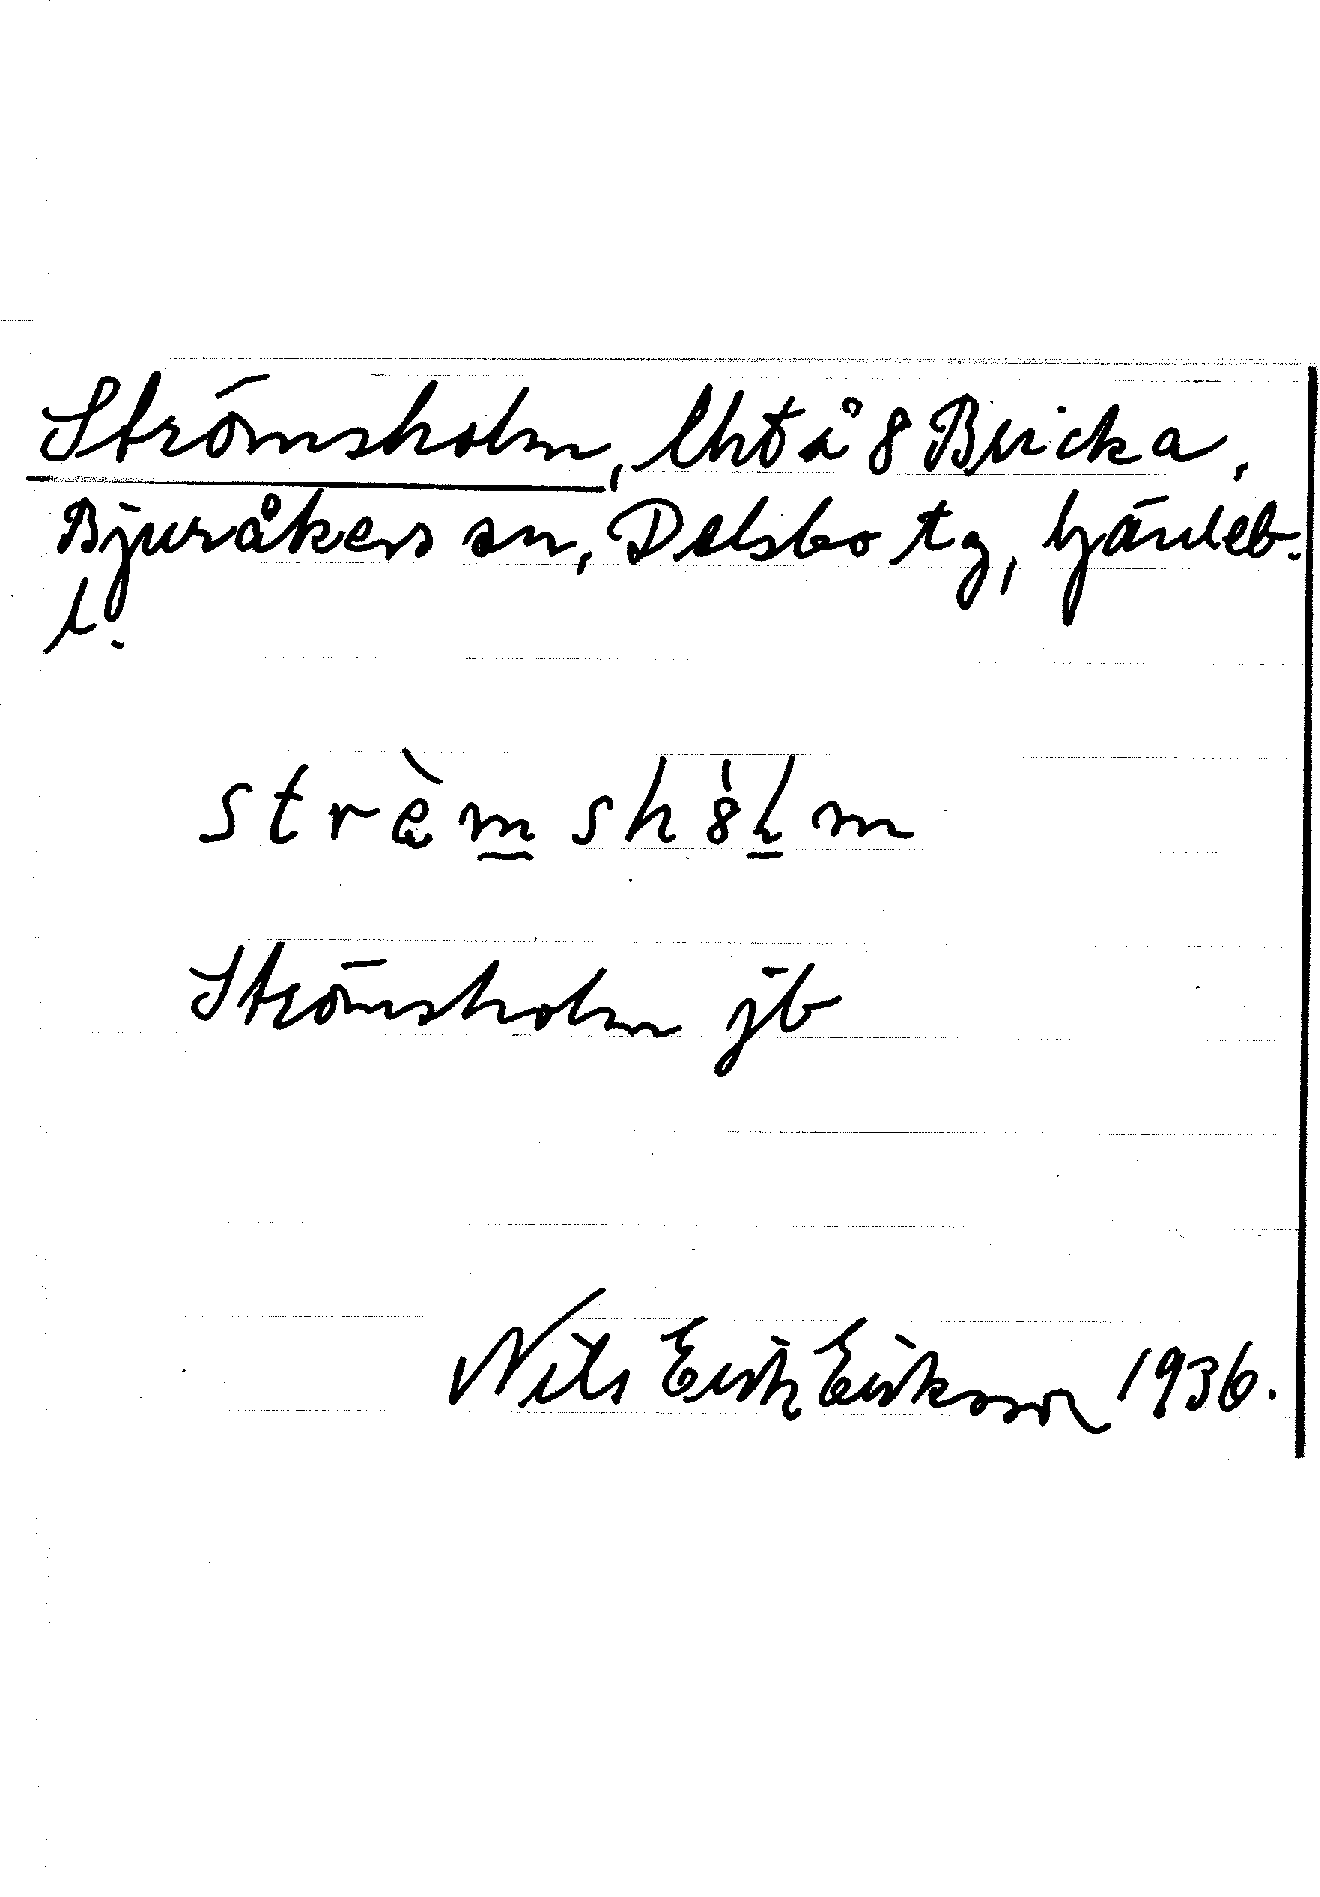 Strömsholm, lht å 8 Bricka,
Bjuråkers sn, Delsbo tg, Gävleb.
l.
strɶ̀m shö̀lm
Strömsholm jb
Nils Erik Eriksson 1936.